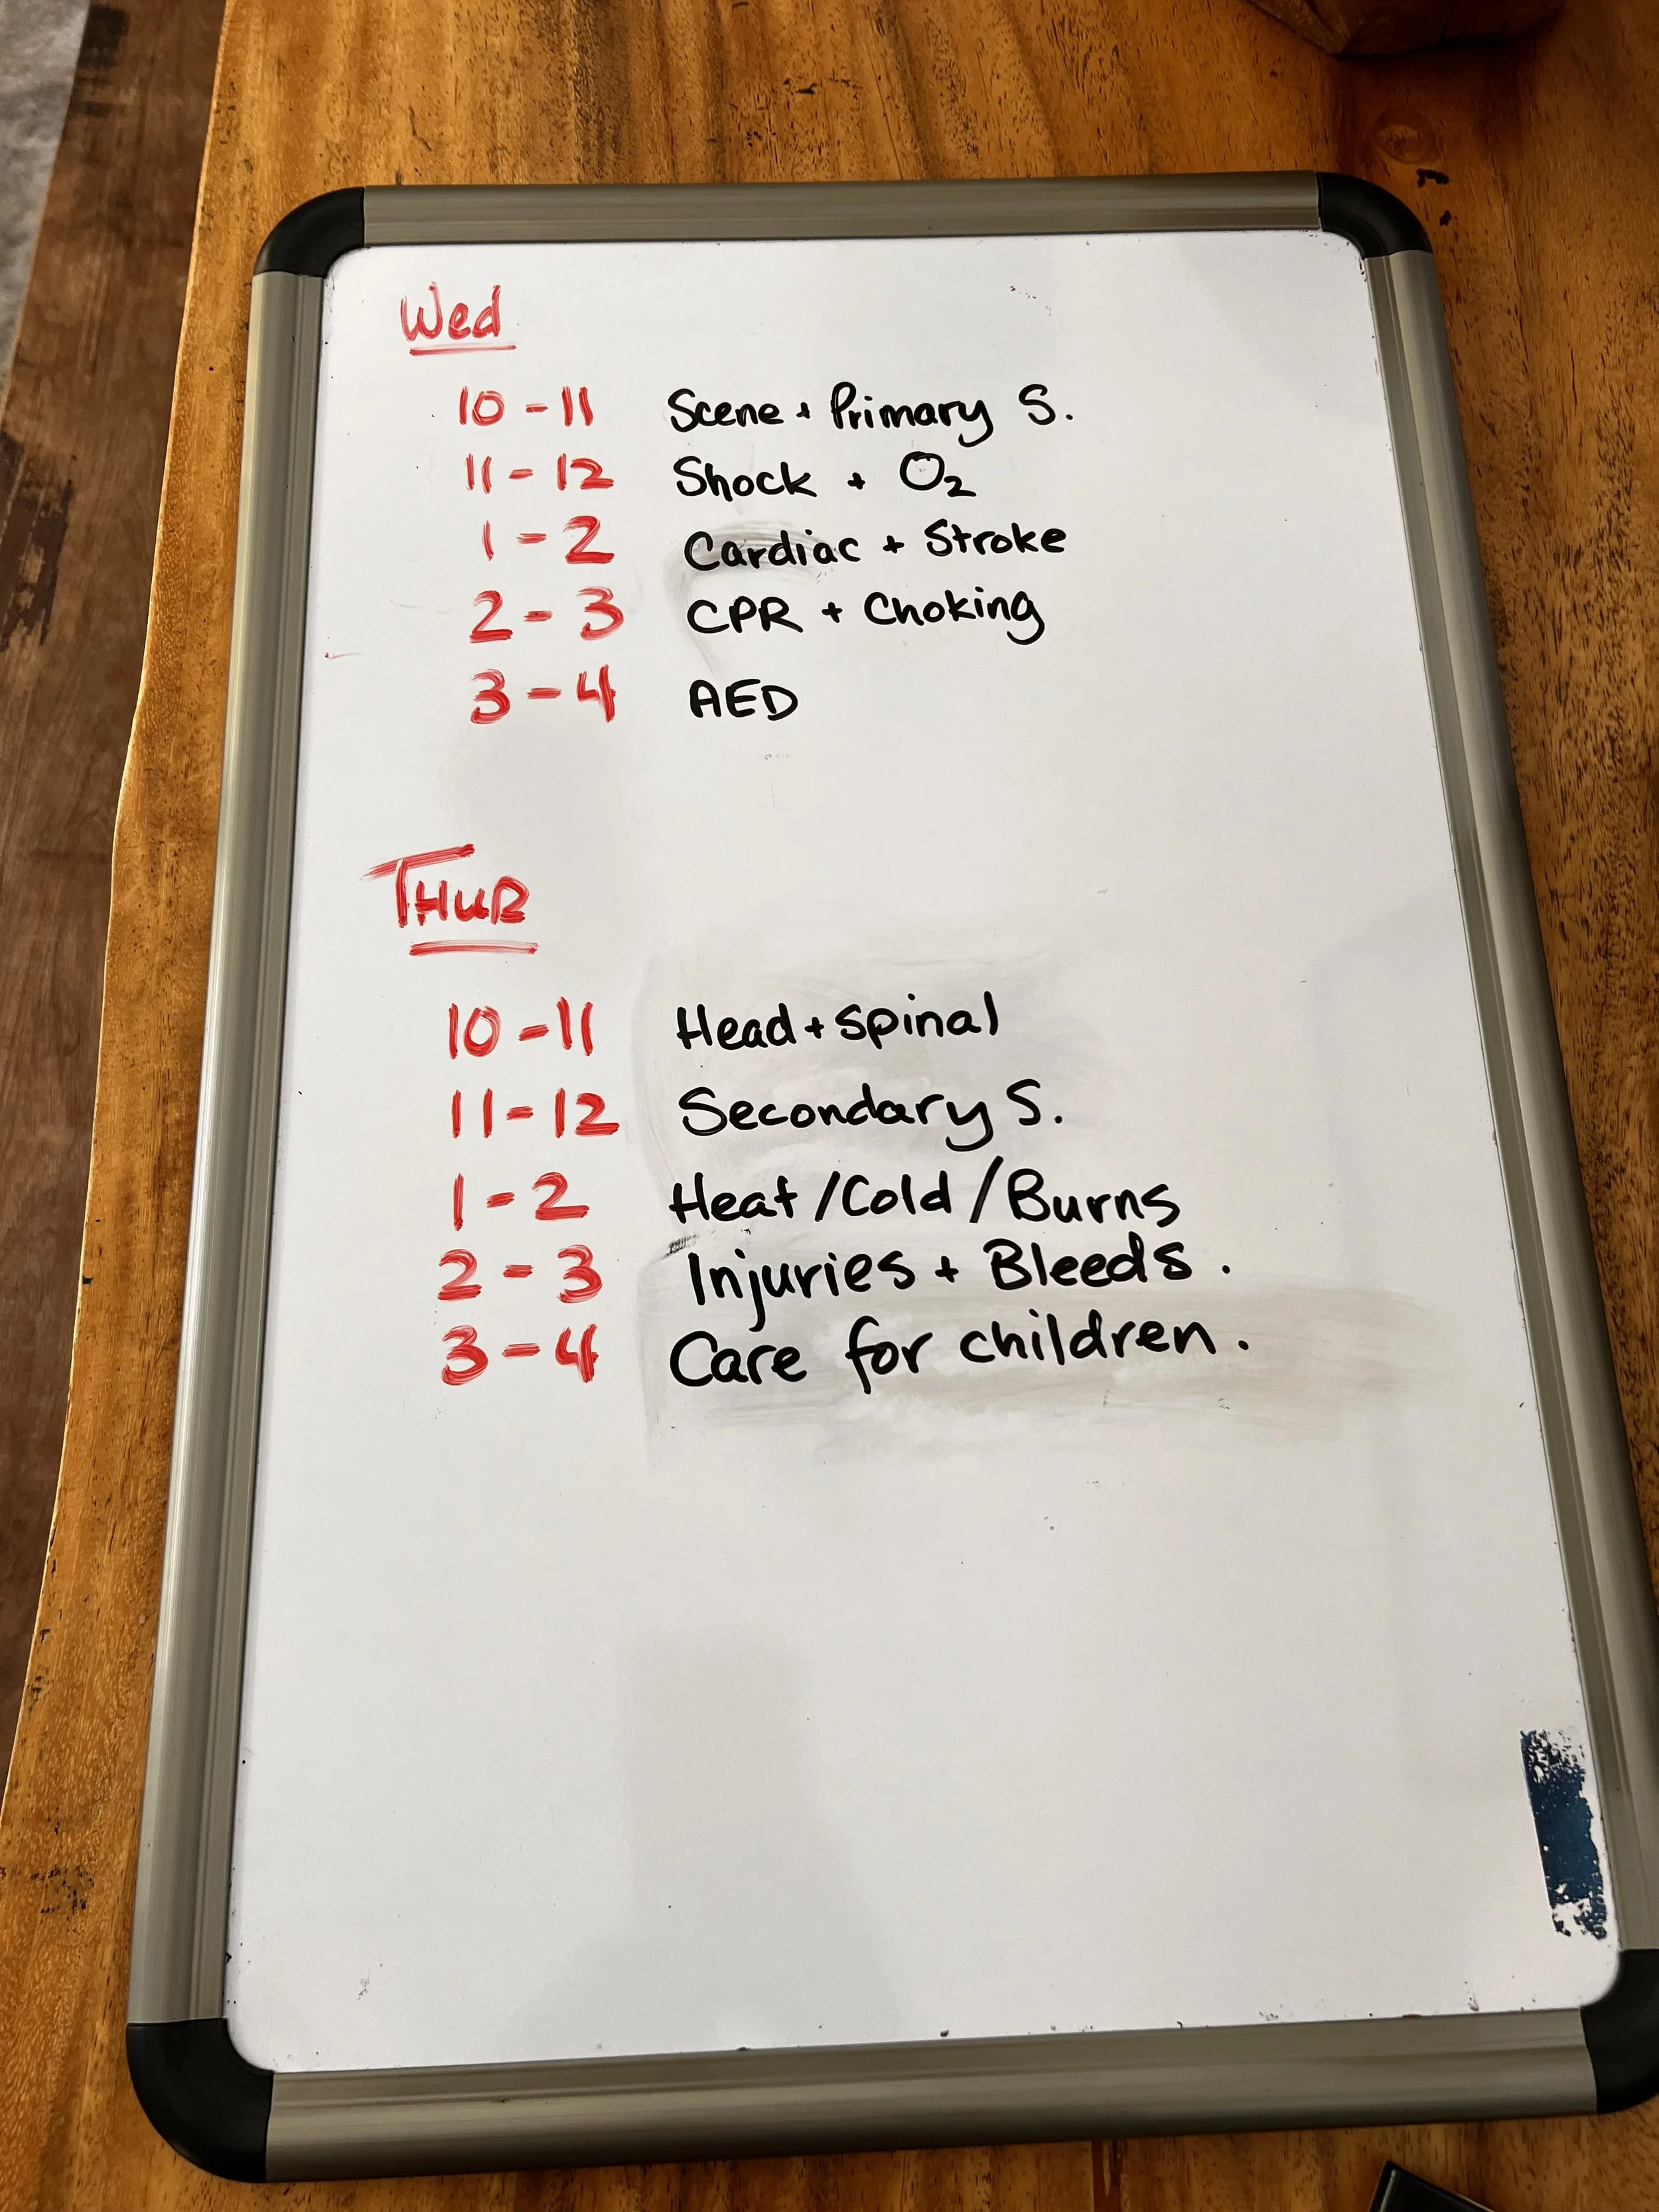 Wed
10 - 11 Scene + Primary S.
11 - 12 Shock + O₂
1 - 2 Cardiac + Stroke
2 - 3 CPR + Choking
3 - 4 AED
THUR
10 - 11 Head + spinal
11 - 12 Secondary S.
1 - 2 Heat / Cold / Burns
2 - 3 Injuries + Bleeds.
3 - 4 Care for children.